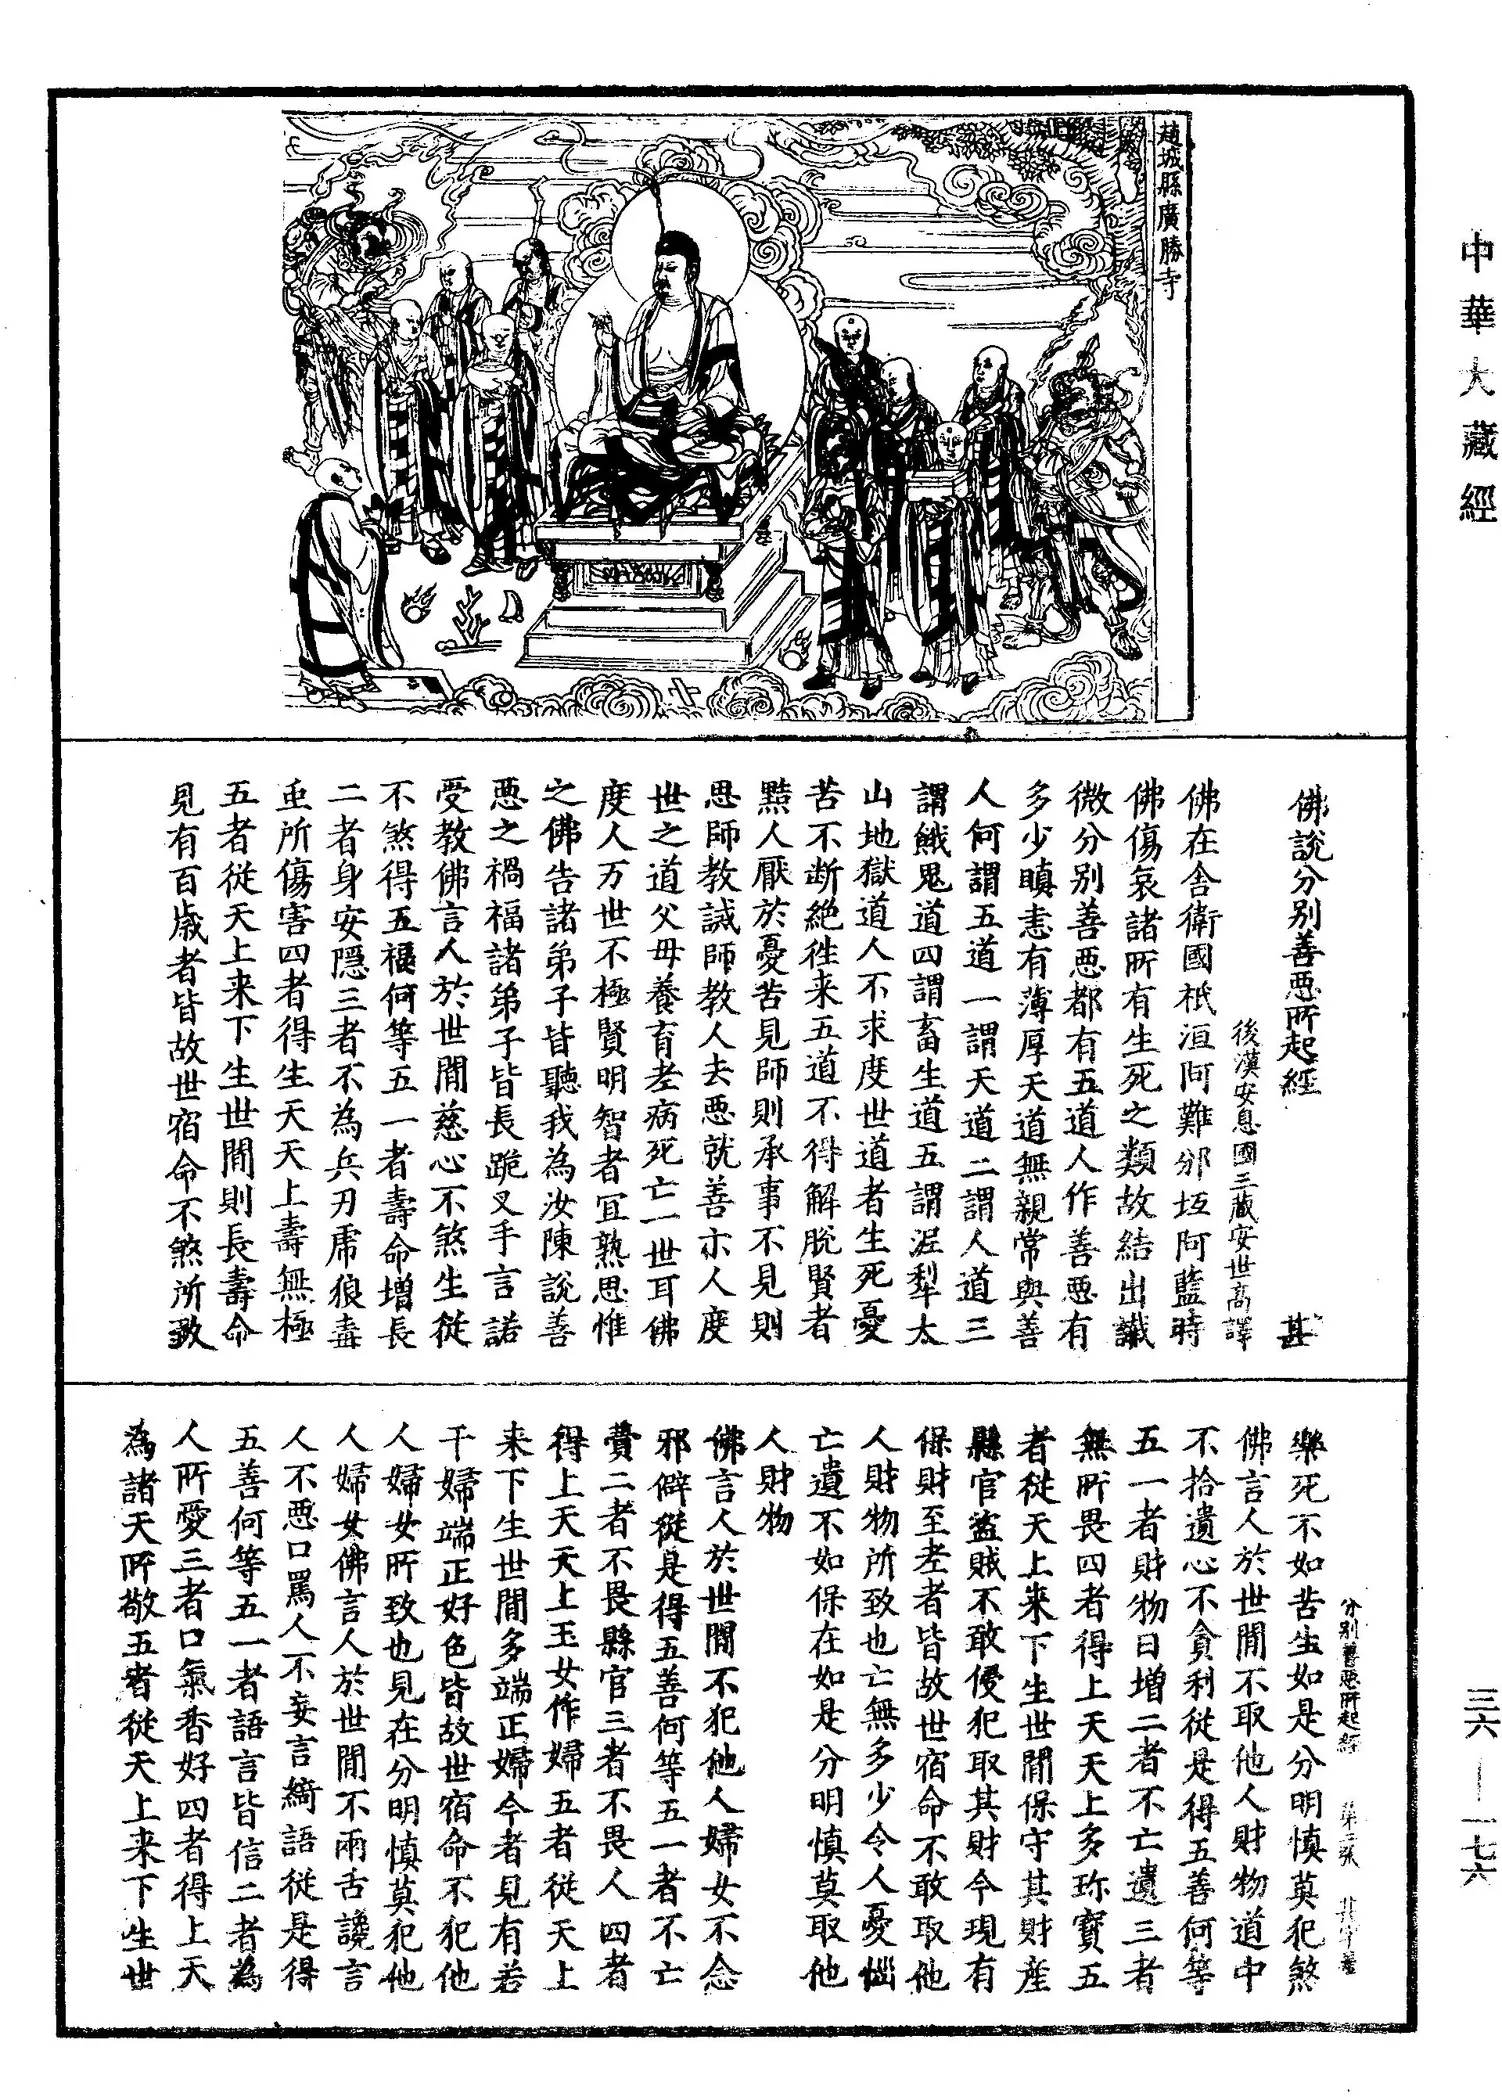 中華大藏經
趙城縣廣勝寺
佛說分別善惡所起經 甚
後漢安息國三藏安世高譯
佛在舍衛國祇洹阿難邠坻阿藍時
佛傷哀諸所有生死之類故結出讖
微分別善惡都有五道人作善惡有
多少瞋恚有薄厚天道無親常與善
人何謂五道一謂天道二謂人道三
謂餓鬼道四謂畜生道五謂泥犁太
山地獄道人不求度世道者生死憂
苦不斷絕往来五道不得解脫賢者
黠人厭於憂苦見師則承事不見則
思師教誡師教人去惡就善示人度
世之道父母養育老病死亡一世耳佛
度人万世不極賢明智者宜熟思惟
之佛告諸弟子皆聽我為汝陳說善
惡之禍福諸弟子皆長跪叉手言諾
受教佛言人於世間慈心不煞生從
不煞得五福何等五一者壽命增長
二者身安隱三者不為兵刃虎狼毒
虫所傷害四者得生天天上壽無極
五者從天上来下生世間則長壽命
見有百歲者皆故世宿命不煞所致
樂死不如苦生如是分明慎莫犯煞
佛言人於世間不取他人財物道中
不拾遺心不貪利從是得五善何等
五一者財物日增二者不亡遺三者
無所畏四者得上天天上多珎寶五
者從天上来下生世間保守其財產
縣官盜賊不敢侵犯取其財今現有
保財至老者皆故世宿命不敢取他
人財物所致也亡無多少令人憂惱
亡遺不如保在如是分明慎莫取他
人財物
佛言人於世間不犯他人婦女不念
邪僻從是得五善何等五一者不亡
費二者不畏縣官三者不畏人四者
得上天天上玉女作婦五者從天上
来下生世間多端正婦今者見有若
干婦端正好色皆故世宿命不犯他
人婦女所致也見在分明慎莫犯他
人婦女佛言人於世間不兩舌讒言
人不惡口罵人不妄言綺語從是得
五善何等五一者語言皆信二者為
人所愛三者口氣香好四者得上天
為諸天所敬五者從天上来下生世
分別善惡所起經 第二張 甚字号
三六—一七六